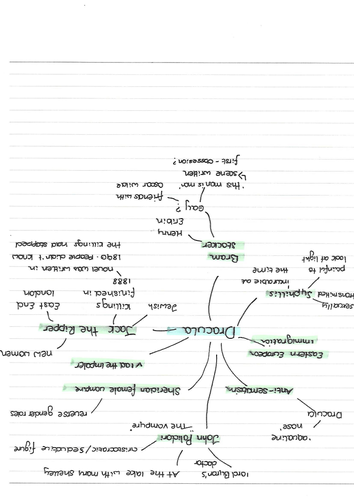 Dracula
John Polidori
Lord Byron's
doctor
At the lake with mary shelley
"The vampyre"
aristocratic / seductive figure
Sheridan female vampire
reverse gender roles
Vlad the Impaler
Jack the Ripper
new women
East End
London
Killings
finished in
1888
novel was written in
1890. People didn't know
the killings had stopped
Jewish
Bram
Stocker
Henry
Gay?
friends with
oscar wilde
'this man is mine'
scene written
first - obsession?
Syphilis
incurable at
the time
sexually
transmitted
look at light
Eastern European
immigration
Anti-Semetism
Dracula
'aquiline
nose'